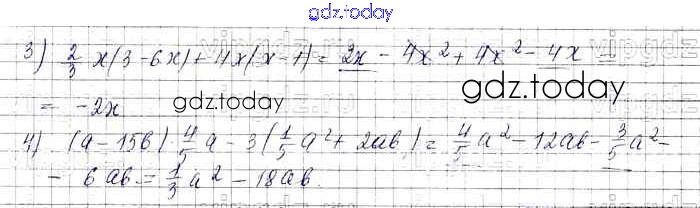 gdz.today
3) 2/3 x(3-6x)+4x(x-1)= 2x - 4x²+4x²-4x =
= -2x
gdz.today
gdz.today
4) (a-15b) 4/5 a - 3(1/5 a²+2ab)= 4/5 a²-12ab- 3/5 a²-
- 6ab = 1/3 a²-18ab.